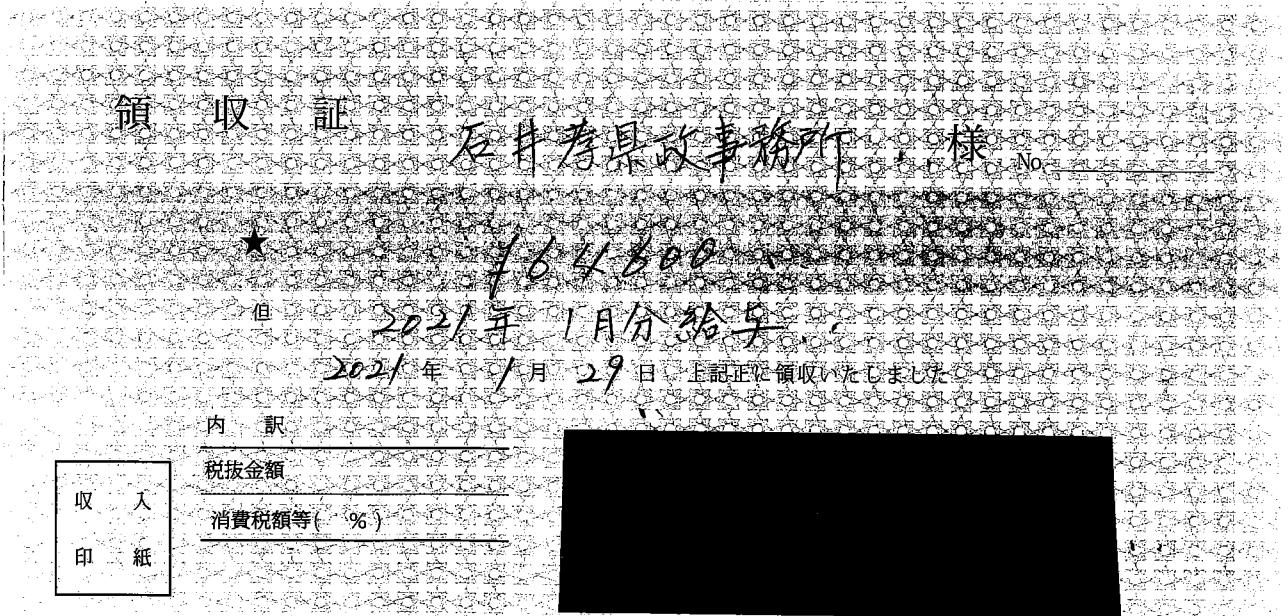 領収証
石井孝県政事務所 様 No.
★ ¥64600
但 2021年 1月分給与
2021年 1月 29日 上記正に領収いたしました
内訳
税抜金額
消費税額等( %)
収入
印紙